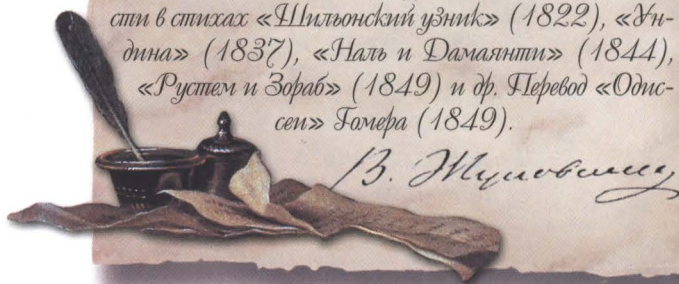 сти в стихах «Шильонский узник» (1822), «Ун-
дина» (1837), «Наль и Дамаянти» (1844),
«Рустем и Зораб» (1849) и др. Перевод «Одис-
сеи» Гомера (1849).
В. Жуковский